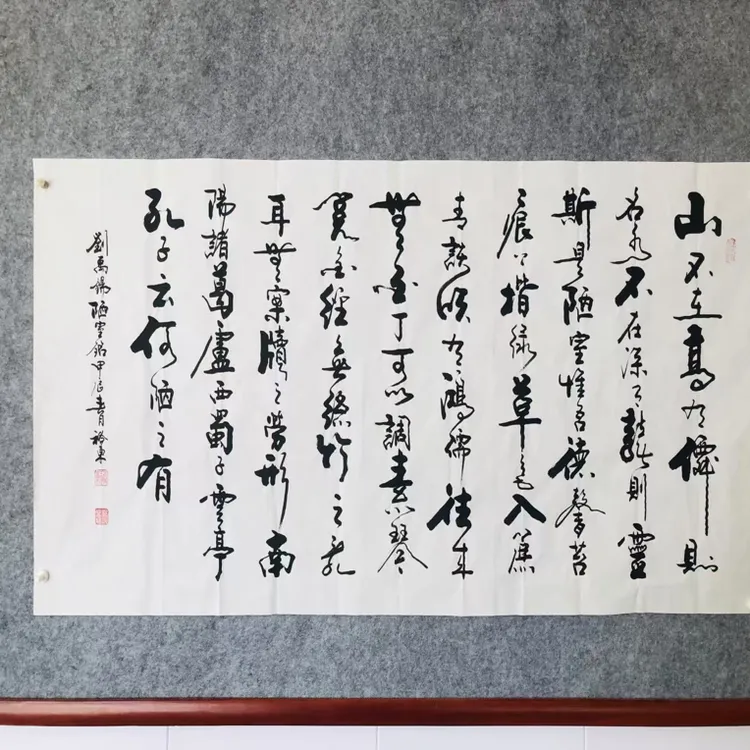 山不在高有僊則
名水不在深有龍則靈
斯是陋室惟吾德馨苔
痕上堦綠草色入簾
青談咲有鴻儒往来
無白丁可以調素琴
閱金經無絲竹之亂
耳無案牘之勞形南
陽諸葛廬西蜀子雲亭
孔子云何陋之有
劉禹錫陋室銘甲辰月東